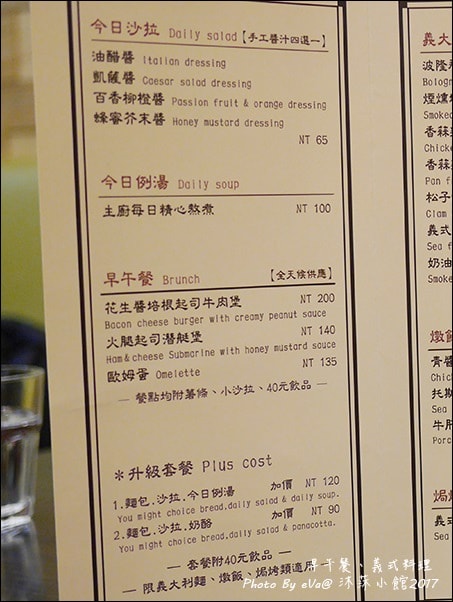 今日沙拉 Daily salad 【手工醬汁四選一】
油醋醬 Italian dressing
凱薩醬 Caesar salad dressing
百香柳橙醬 Passion fruit & orange dressing
蜂蜜芥末醬 Honey mustard dressing
NT 65
今日例湯 Daily soup
主廚每日精心熬煮 NT 100
早午餐 Brunch 【全天候供應】
花生醬培根起司牛肉堡 NT 200
Bacon cheese burger with creamy peanut sauce
火腿起司潛艇堡 NT 140
Ham & cheese Submarine with honey mustard sauce
歐姆蛋 Omelette NT 135
— 餐點均附薯條、小沙拉、40元飲品 —
＊升級套餐 Plus cost
1.麵包.沙拉.今日例湯 加價 NT 120
You might choice bread,daily salad & daily soup.
2.麵包.沙拉.奶酪 加價 NT 90
You might choice bread,daily salad & panacotta.
— 套餐附40元飲品 —
— 限義大利麵、燉飯、焗烤類適用
義大
波隆
Bologn
煙燻
Smoked
香蒜
Chicke
香蒜
Pan f
松子
Clam
義式
Sea f
奶油
Smoked
燉飯
青醬
Chic
托斯
Sea
牛肝
Porc
焗
義式
Sea
早午餐、義式料理
Photo By eVa@ 沐荞小館2017